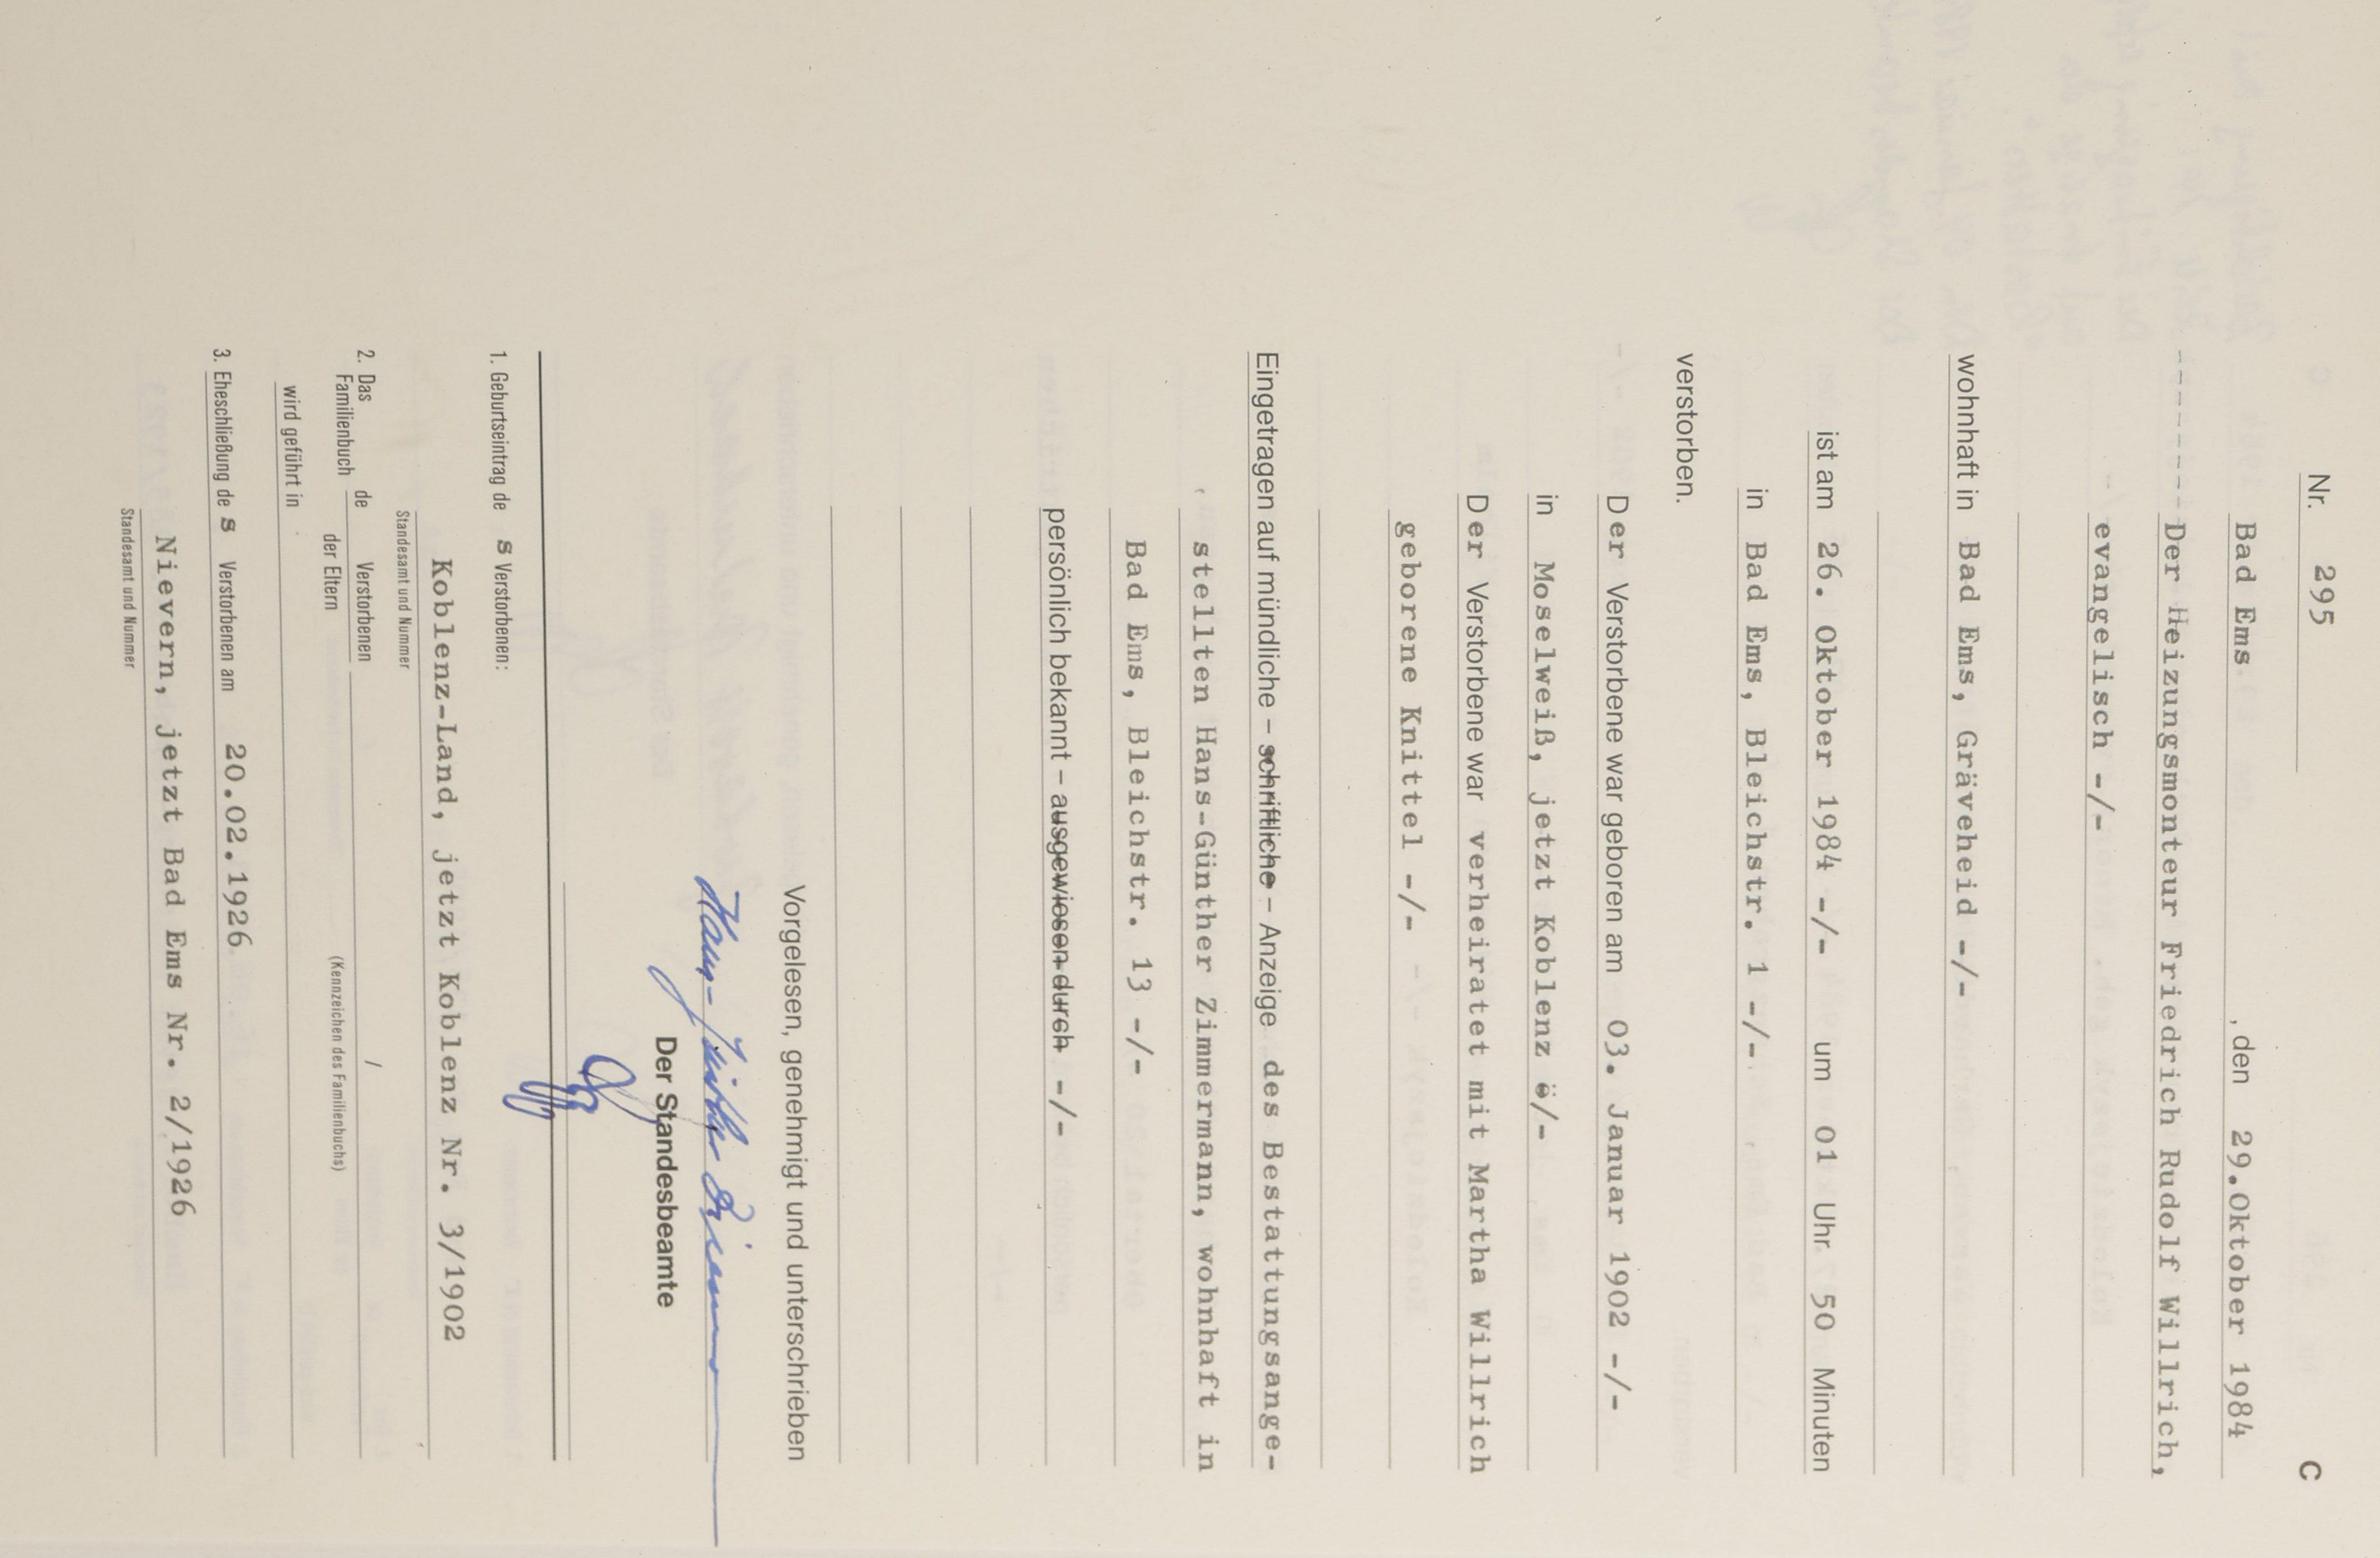 Nr. 295 C
Bad Ems, den 29.Oktober 1984
Der Heizungsmonteur Friedrich Rudolf Willrich,
evangelisch -/-
wohnhaft in Bad Ems, Gräveheid -/-
ist am 26. Oktober 1984 -/- um 01 Uhr 50 Minuten
in Bad Ems, Bleichstr. 1 -/-
verstorben.
Der Verstorbene war geboren am 03. Januar 1902 -/-
in Moselweiß, jetzt Koblenz ö/-
Der Verstorbene war verheiratet mit Martha Willrich
geborene Knittel -/-
Eingetragen auf mündliche – schriftliche – Anzeige des Bestattungsange-
stellten Hans-Günther Zimmermann, wohnhaft in
Bad Ems, Bleichstr. 13 -/-
persönlich bekannt – ausgewiesen durch -/-
Vorgelesen, genehmigt und unterschrieben
Hans-Günther Zimmermann
Der Standesbeamte
1. Geburtseintrag des Verstorbenen:
Koblenz-Land, jetzt Koblenz Nr. 3/1902
Standesamt und Nummer
2. Das Familienbuch de Verstorbenen / der Eltern
(Kennzeichen des Familienbuchs)
wird geführt in
3. Eheschließung des Verstorbenen am 20.02.1926
Nievern, jetzt Bad Ems Nr. 2/1926
Standesamt und Nummer